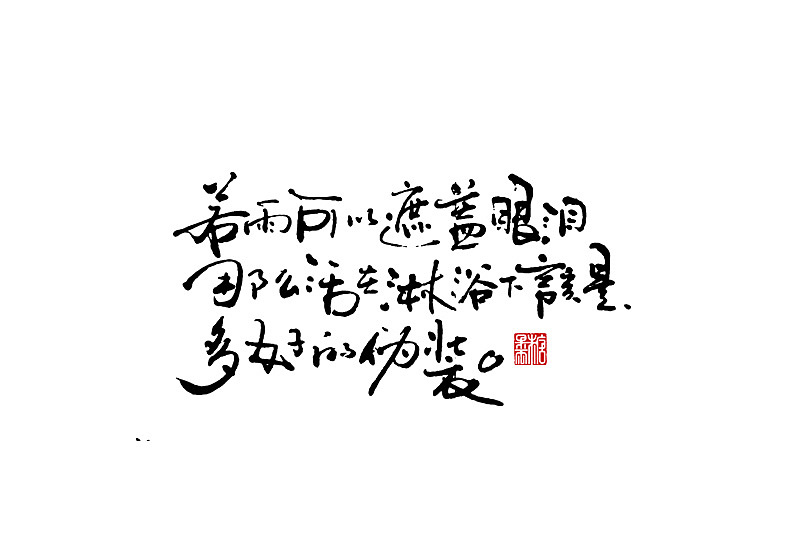 若雨可以遮盖眼泪
那么活在淋浴下該是
多好的伪装。